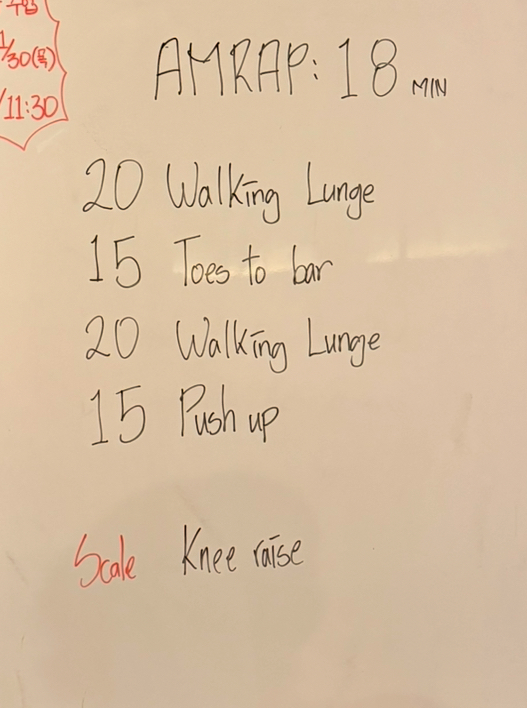 수업
1/30(목)
/11:30
AMRAP: 18 MIN
20 Walking Lunge
15 Toes to bar
20 Walking Lunge
15 Push up
Scale Knee raise